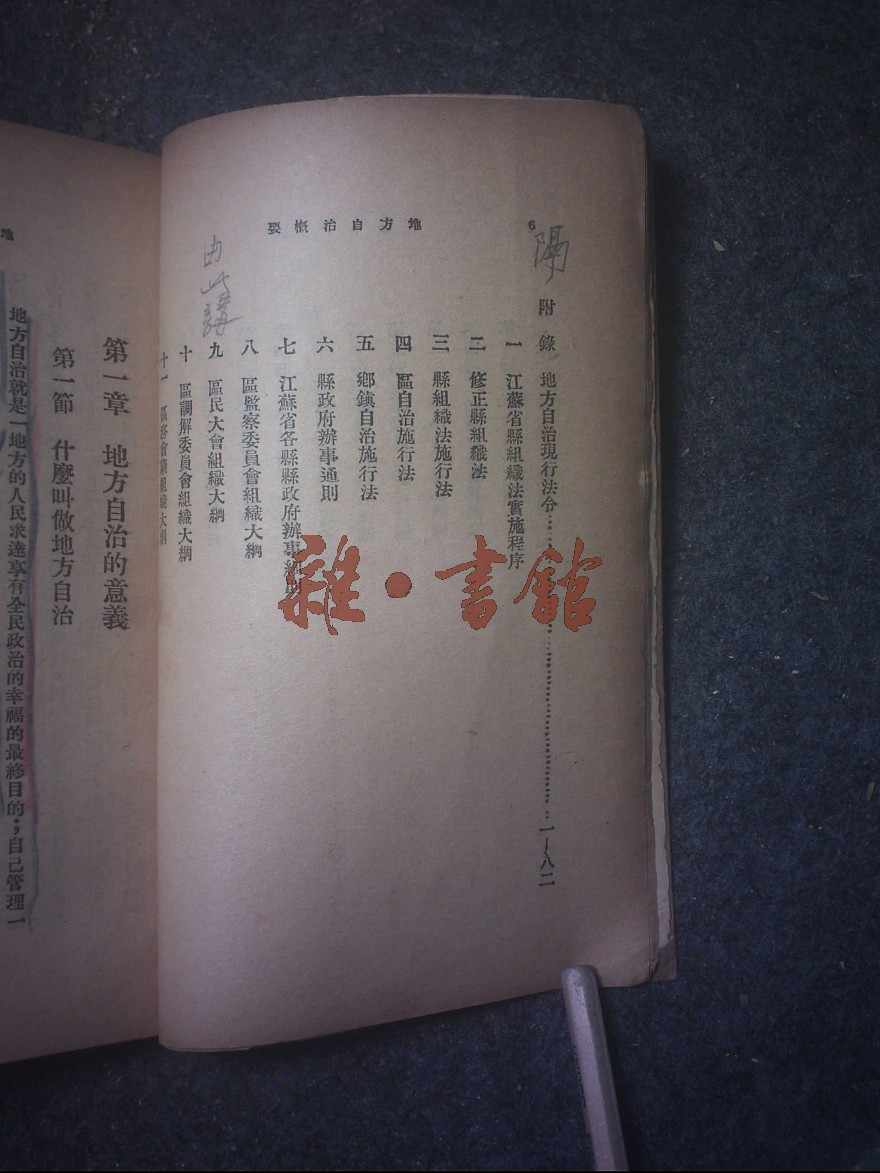 地方自治概要
6
隔
附錄 地方自治現行法令……一—八二
一 江蘇省縣組織法實施程序
二 修正縣組織法
三 縣組織法施行法
四 區自治施行法
五 鄉鎮自治施行法
六 縣政府辦事通則
七 江蘇省各縣縣政府辦事細則
八 區監察委員會組織大綱
九 區民大會組織大綱
十 區調解委員會組織大綱
十一 區務會議組織大綱
由此講
雜·書館
地
第一章 地方自治的意義
第一節 什麼叫做地方自治
地方自治就是一地方的人民求達享有全民政治的幸福的最終目的；自己管理一